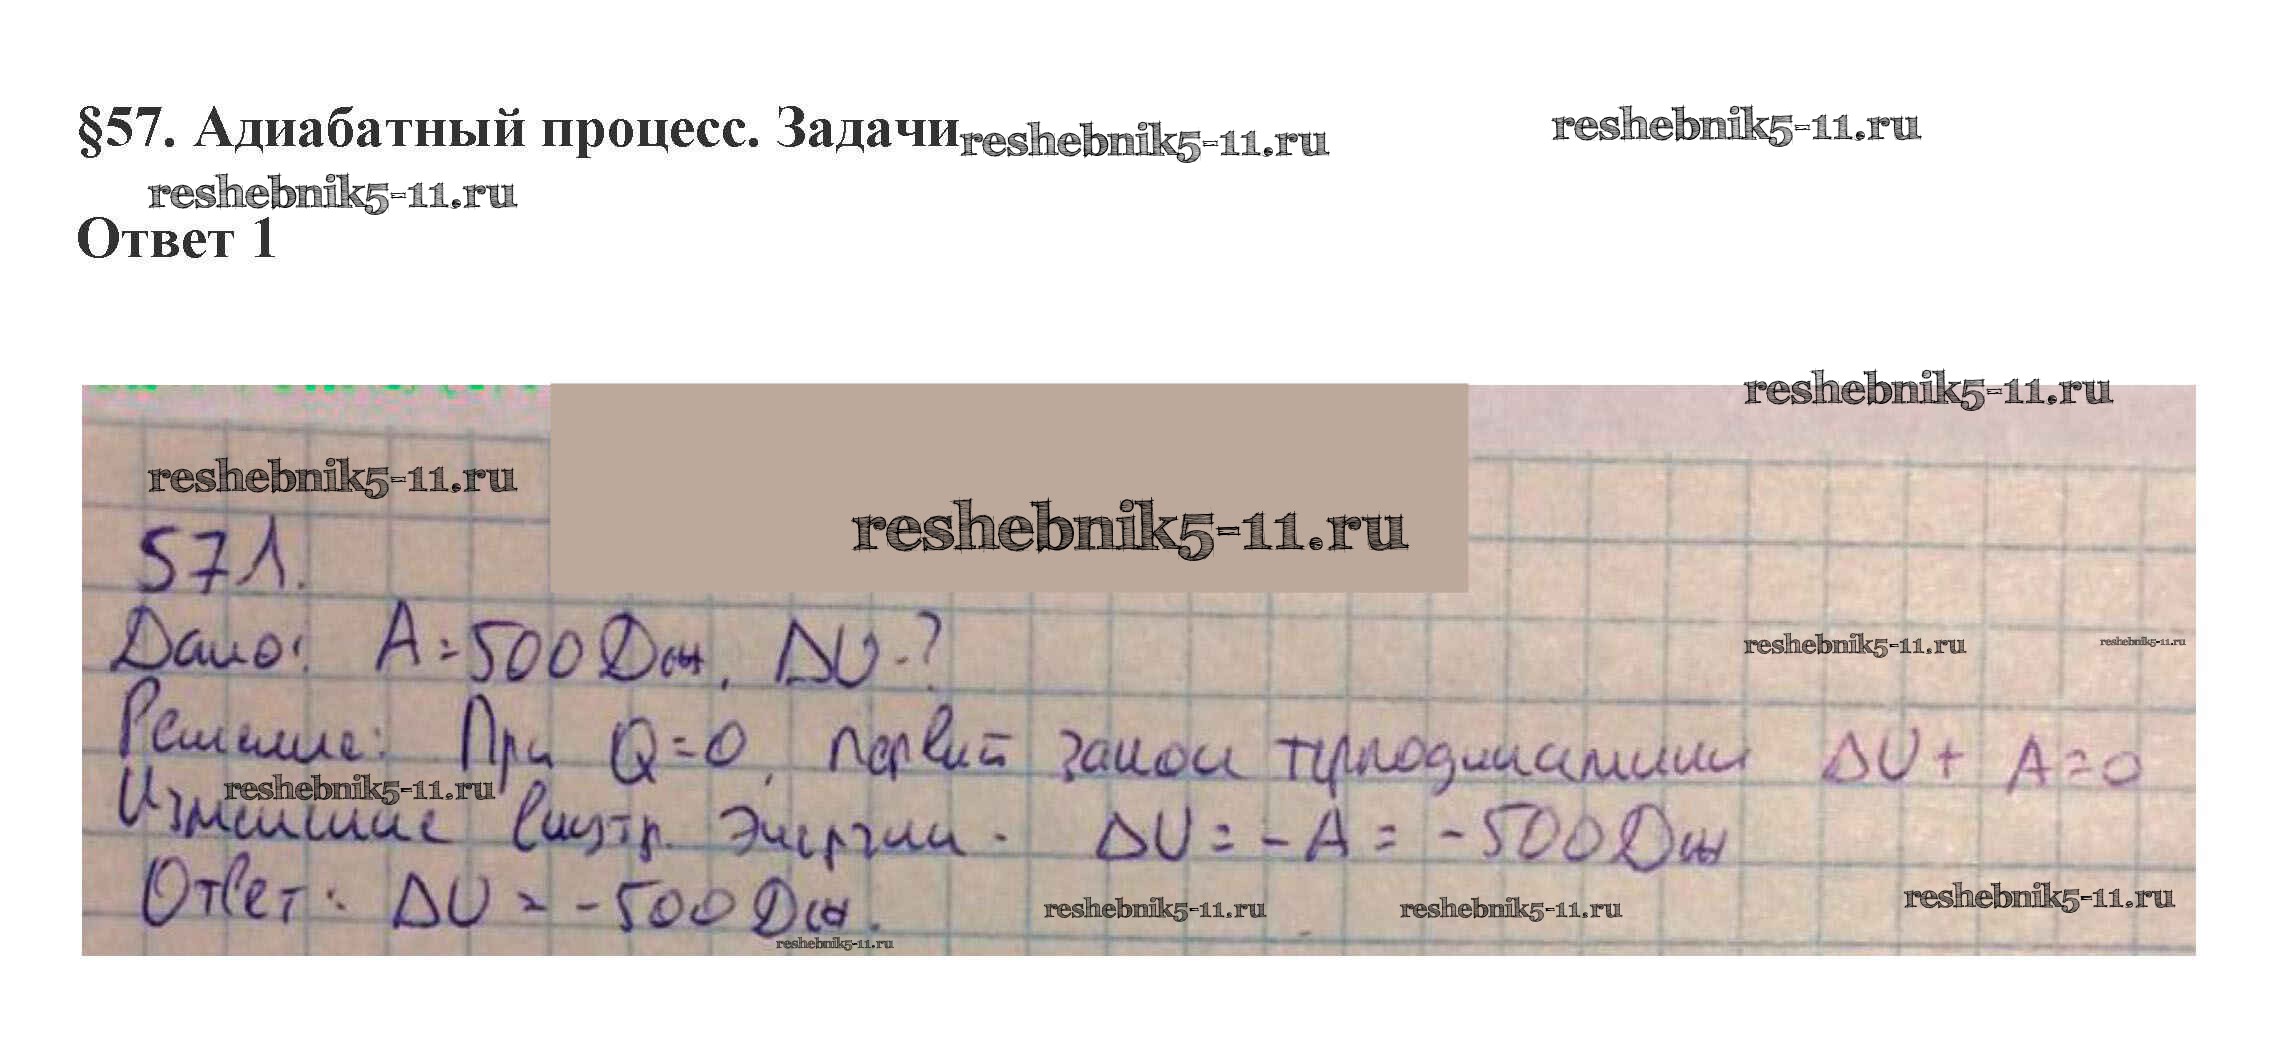 §57. Адиабатный процесс. Задачи
reshebnik5-11.ru
reshebnik5-11.ru
reshebnik5-11.ru
Ответ 1
reshebnik5-11.ru
reshebnik5-11.ru
reshebnik5-11.ru
57 1.
Дано: A=500 Дж, ΔU-?
reshebnik5-11.ru
reshebnik5-11.ru
Решение: При Q=0, первый закон термодинамики ΔU + A=0
reshebnik5-11.ru
Изменение внутр. энергии - ΔU = -A = -500 Дж
Ответ: ΔU = -500 Дж.
reshebnik5-11.ru
reshebnik5-11.ru
reshebnik5-11.ru
reshebnik5-11.ru